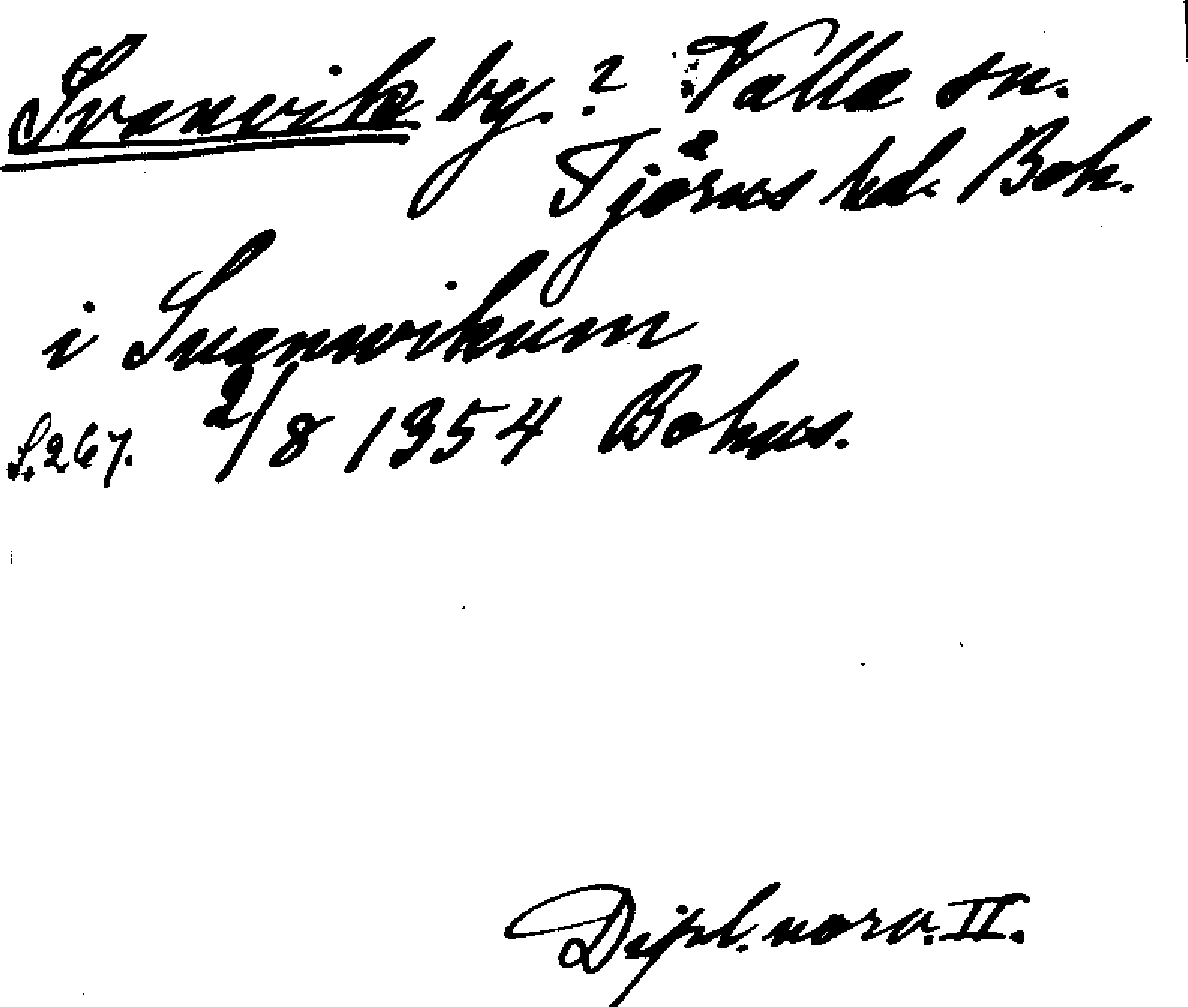 Svanvik by. ? Valla sn.
Tjörns hd. Boh.
i Suanwikum
S. 267. 2/8 1354 Bohus.
Dipl. norv. II.